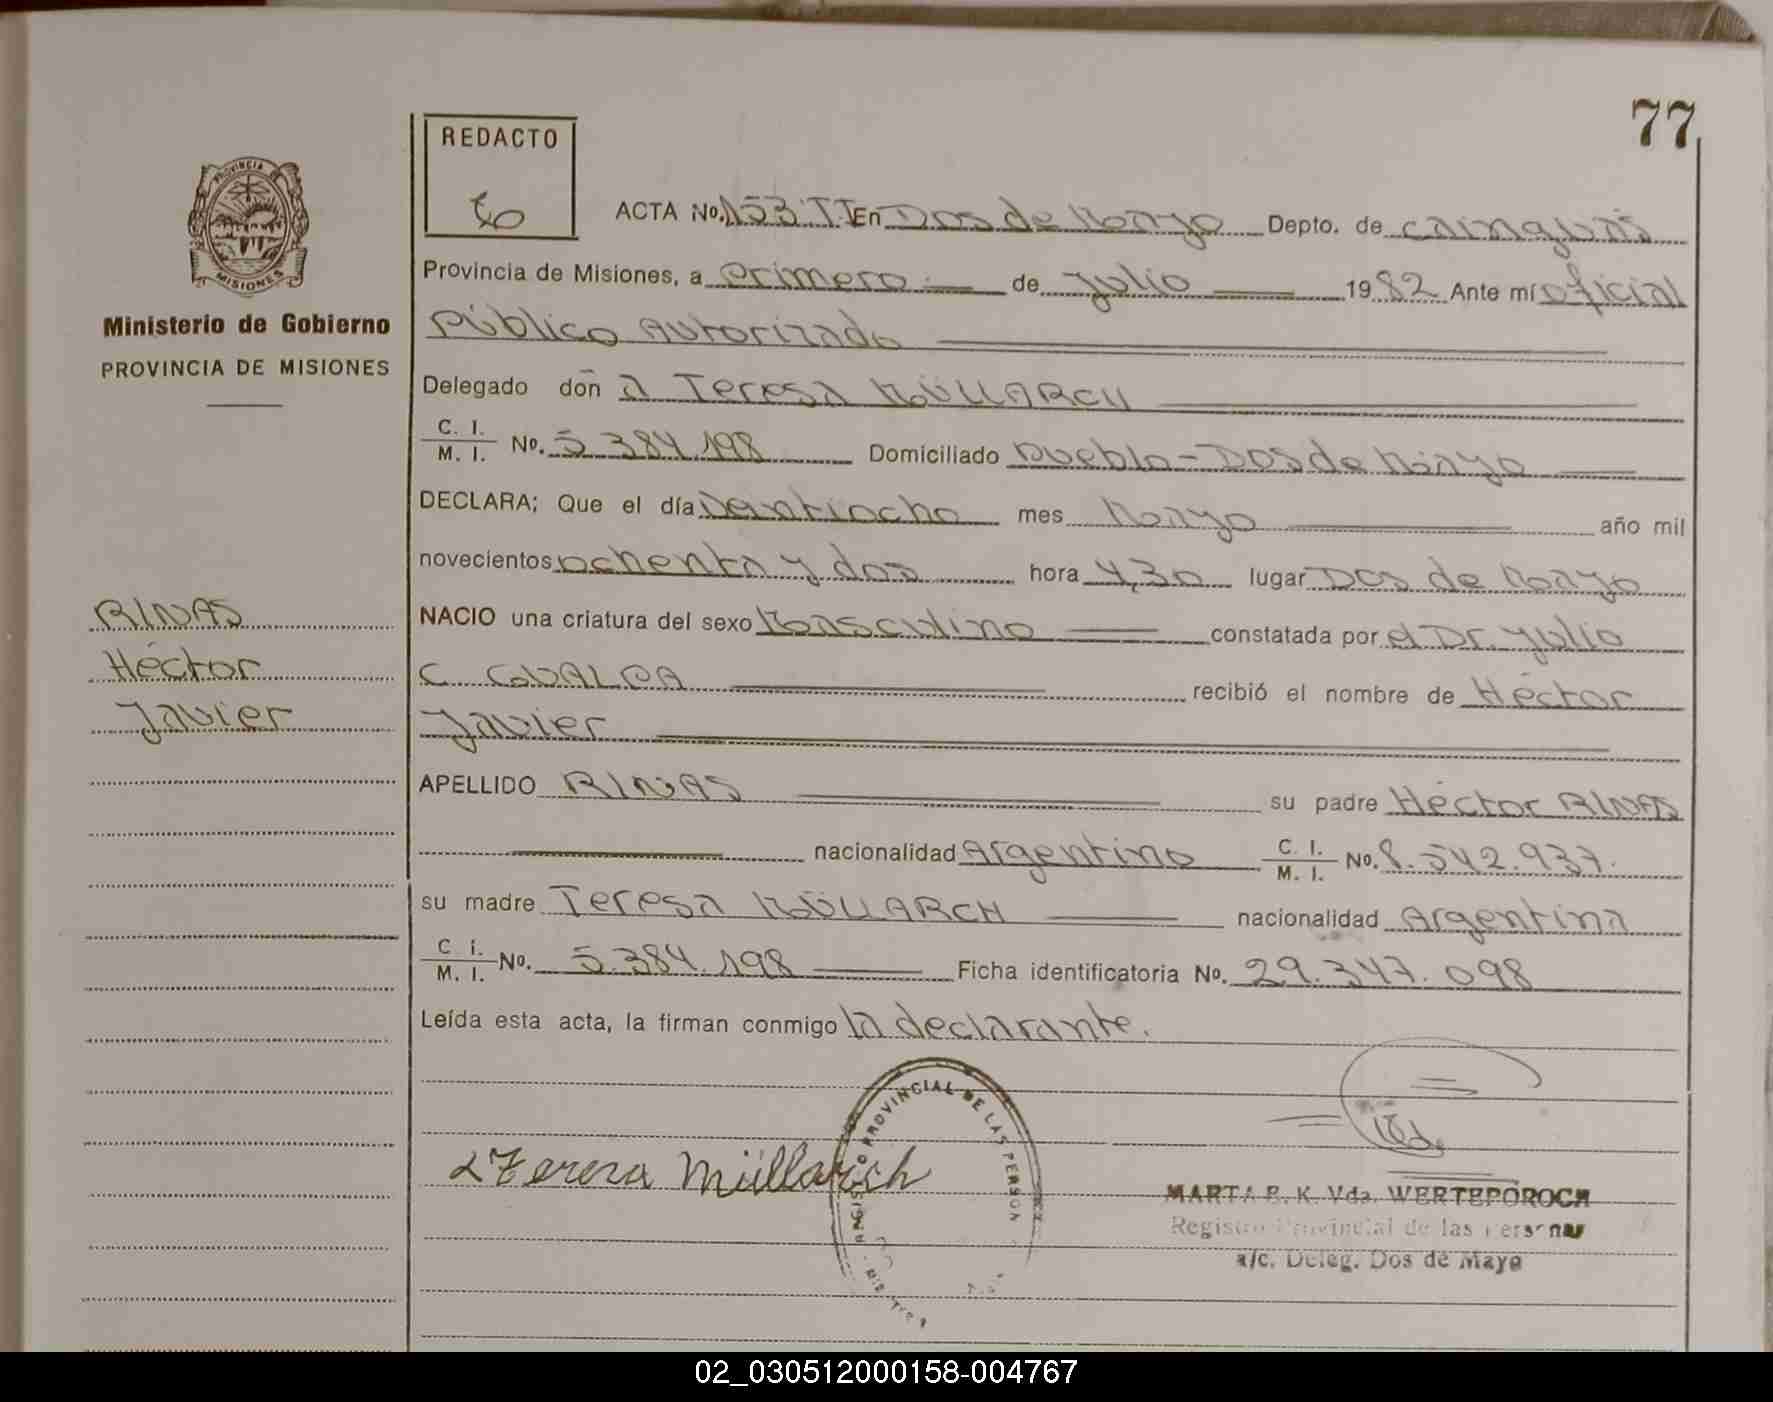 77
REDACTO
PROVINCIA
MISIONES
Ministerio de Gobierno
PROVINCIA DE MISIONES
ACTA No. 153 TI En Dos de Mayo Depto. de Cainguás
Provincia de Misiones, a primero de Julio 1982 Ante mí oficial
Público Autorizado
Delegado don a Teresa MÜLLARCH
C. I. / M. I. No. 5.384.198 Domiciliado Pueblo - Dos de Mayo
DECLARA; Que el día Veintiocho mes Mayo año mil
novecientos ochenta y dos hora 4,30 lugar Dos de Mayo
NACIO una criatura del sexo Masculino constatada por el Dr. Julio
C. GUALPA recibió el nombre de Héctor
Javier
APELLIDO RINAS su padre Héctor RINAS
nacionalidad Argentino C. I. / M. I. No. 8.542.937.
su madre Teresa MÜLLARCH nacionalidad Argentina
C. I. / M. I. No. 5.384.198 Ficha identificatoria No. 29.347.098
Leída esta acta, la firman conmigo la declarante.
RINAS
Héctor
Javier
Teresa Müllarch
REGISTRO PROVINCIAL DE LAS PERSON
MARTA E. K. Vda. WERTEPOROCH
Registro Provincial de las Personas
a/c. Deleg. Dos de Mayo
02_030512000158-004767